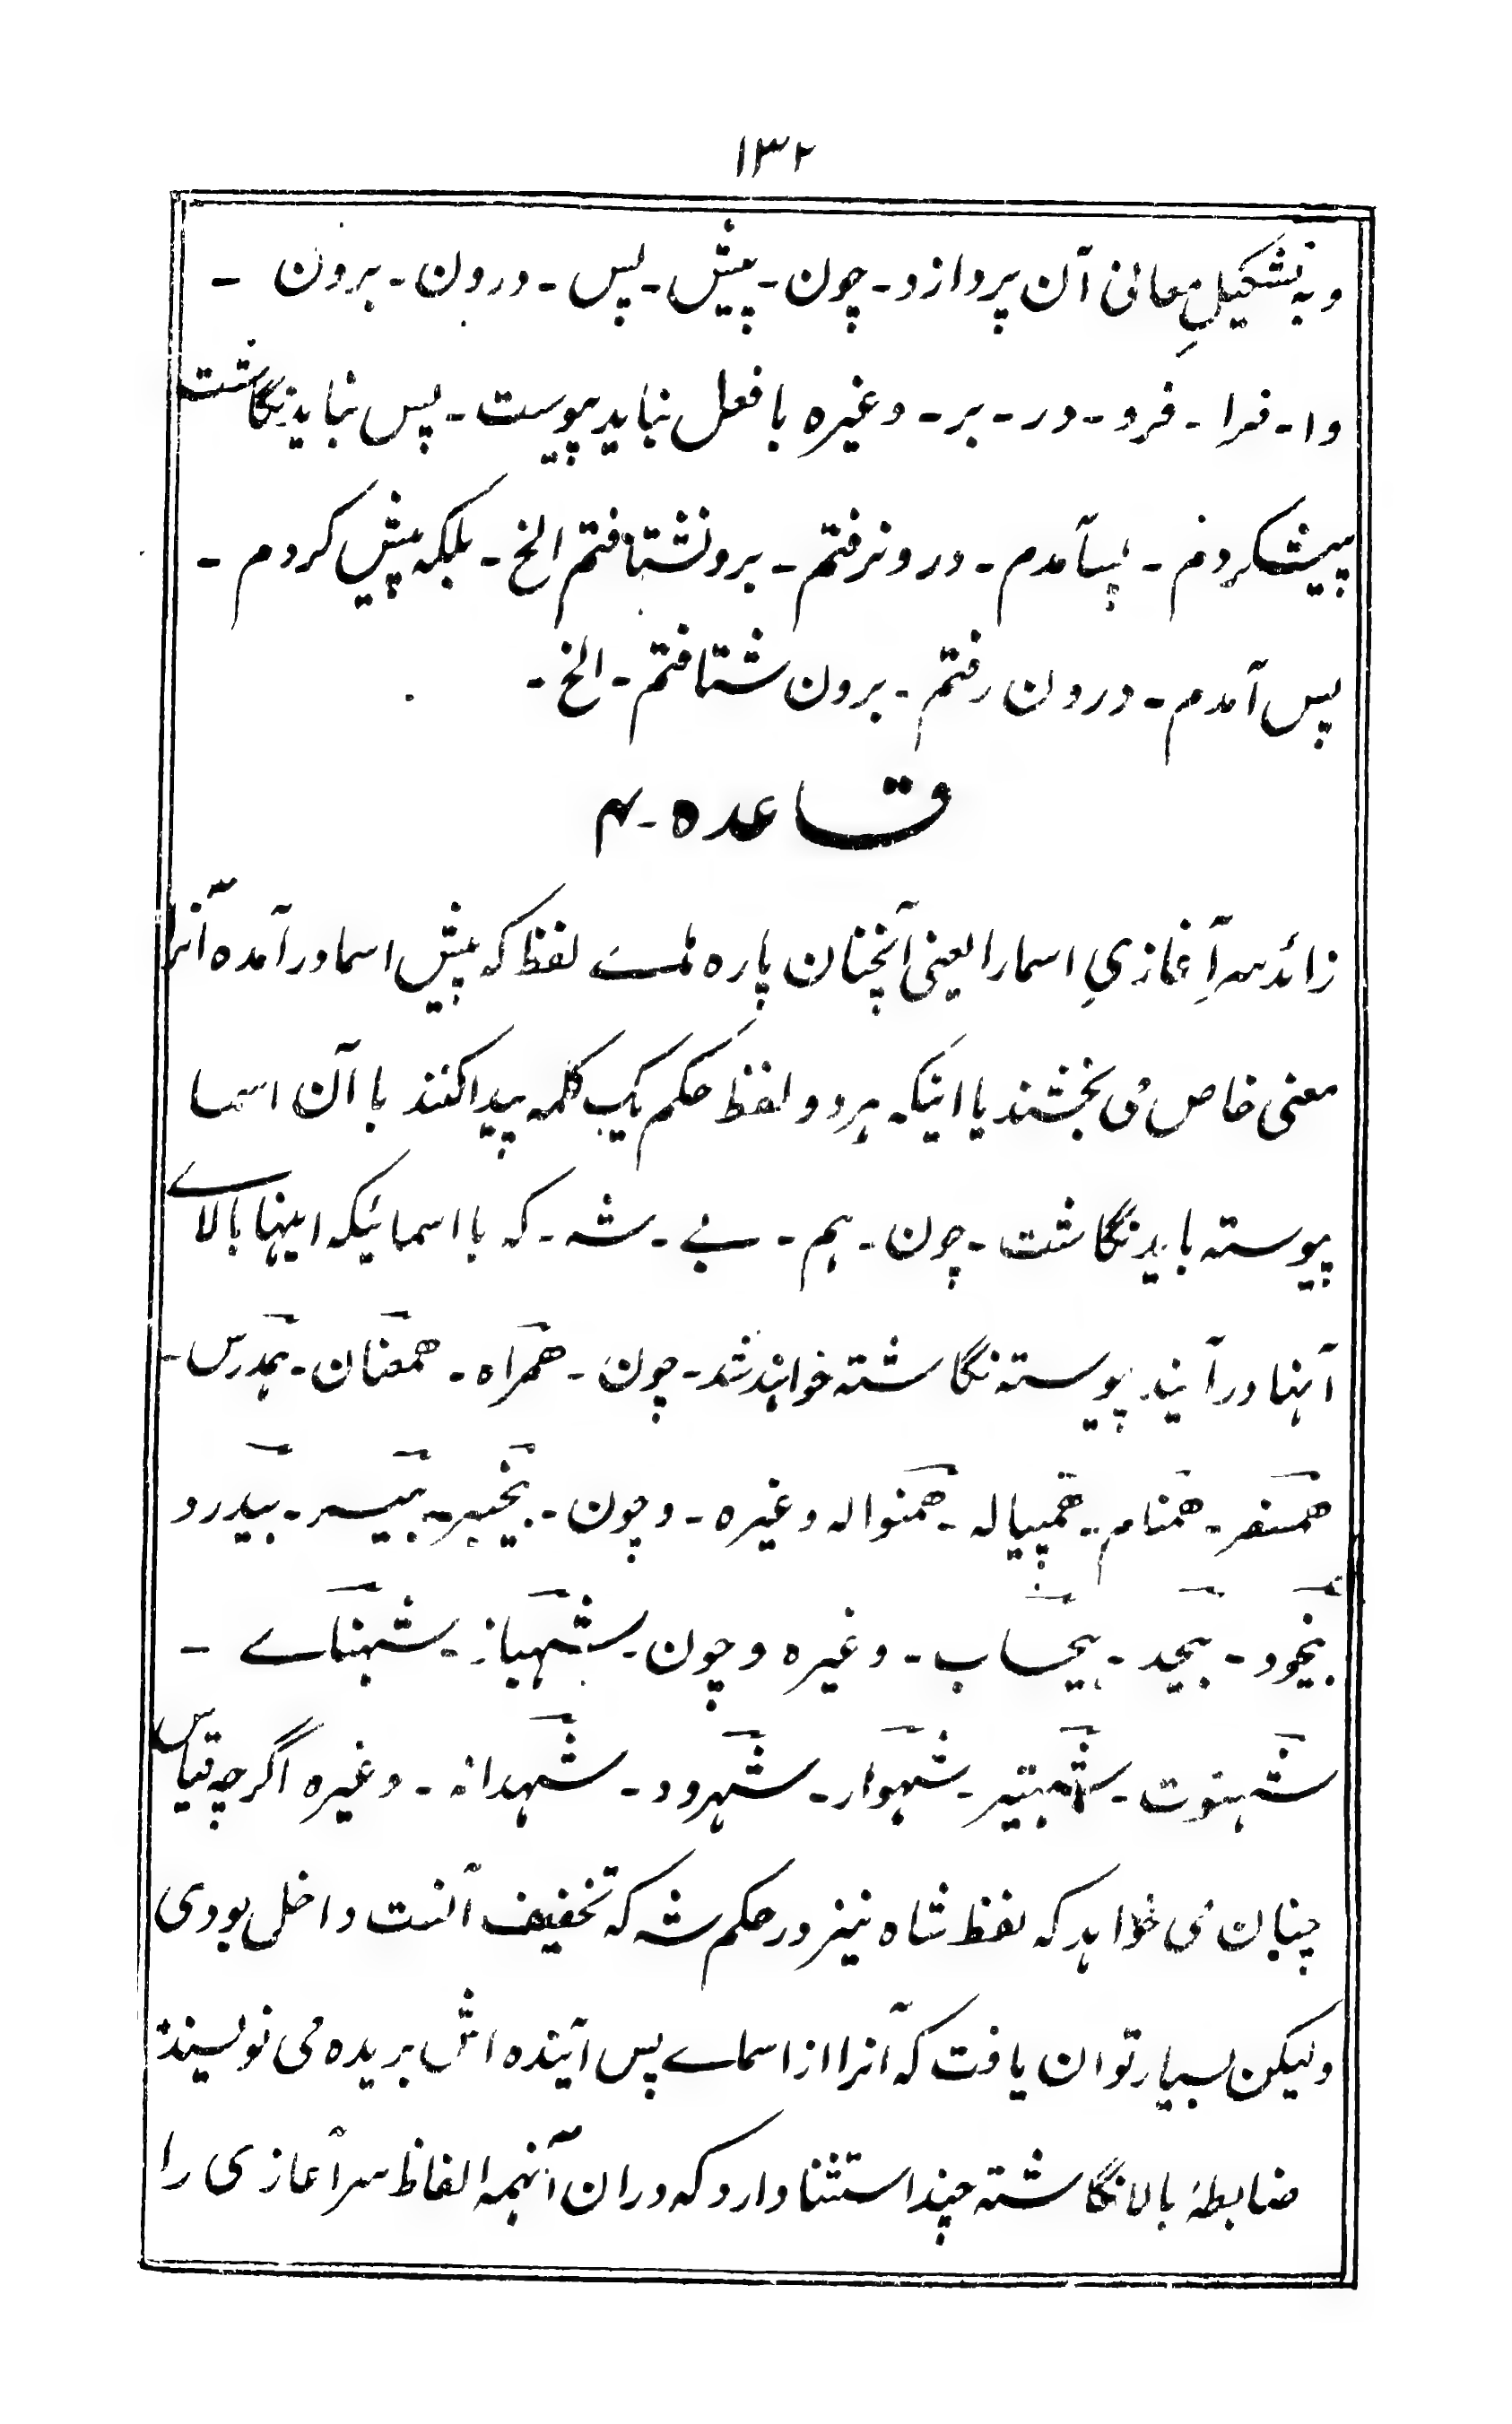 ۱۳۲
و به تشکیلِ معانی آن پردازد - چون - پیش - پس - درون - برون -
وا - فرا - فرو - در - بر - وغیره با فعل نباید پیوست - پس نباید نگاشت
پیشکردم - پسآمدم - درونرفتم - برونشتافتم الخ - بلکه پیش کردم -
پس آمدم - درون رفتم - برون شتافتم - الخ -
قاعده - ۴
زائد سرآغازیِ اسما را یعنی آنچنان پاره هاے لفظ که پیش اسما درآمده آنرا
معنی خاص می بخشند یا اینکه هر دو لفظ حکم یک کلمه پیدا کنند با آن اسما
پیوسته باید نگاشت - چون - هم - بے - شه - که با اسمائیکه اینها بالاے
آنها درآیند پیوسته نگاشته خواهند شد - چون - همراه - همعنان - همدرس -
همسفر - همنام - همپیاله - همنواله وغیره - و چون - بیخبر - بیسر - بیدرد
بیخود - بیحد - بیحساب - وغیره و چون - شهباز - شهناے -
شهنوت - شهتیر - شهوار - شهرود - شهدانه - وغیره اگرچه قیاس
چنان می خواهد که لفظ شاه نیز در حکم شه که تخفیف آنست داخل بودی
ولیکن بسیار توان یافت که آنرا از اسماے پس آینده اش بریده می نویسند
ضابطهٔ بالا نگاشته چند استثنا دارد که دران آنهمه الفاظ سرآغازی را